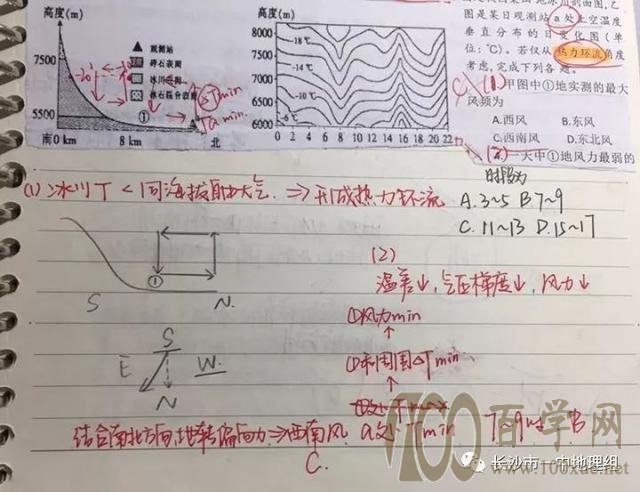 高度(m)
7500
5500
5100
观测站
碎石表面
冰川表面
-20°
①
△Tmin
Tamin.
南0 km
8 km
北
高度(m)
8000
7500
7000
6500
6000
-18℃
-14℃
-10℃
-6℃
0 2 4 6 8 10 12 14 16 18 20 22
图是某日观测站a处上空温度
垂直分布的日变化图(单
位:℃)。若仅从热力环流角度
考虑,完成下列各题。
C (1)甲图中①地实测的最大
风频为
A.西风 B.东风
C.西南风 D.东北风
(2)一天中①地风力最弱的
时段为
A.3~5 B.7~9
C.11~13 D.15~17
(1)冰川T<同海拔自由大气.⇒形成热力环流
①
S N.
S
E W.
N
结合南北方向,地转偏向力⇒西南风
C.
(2)
温差↓,气压梯度↓,风力↓
①风力min
↑
①和周围△Tmin
↑
a处Tmin 7~9时 B
100百学网
www.100xue.net
长沙市一中地理组